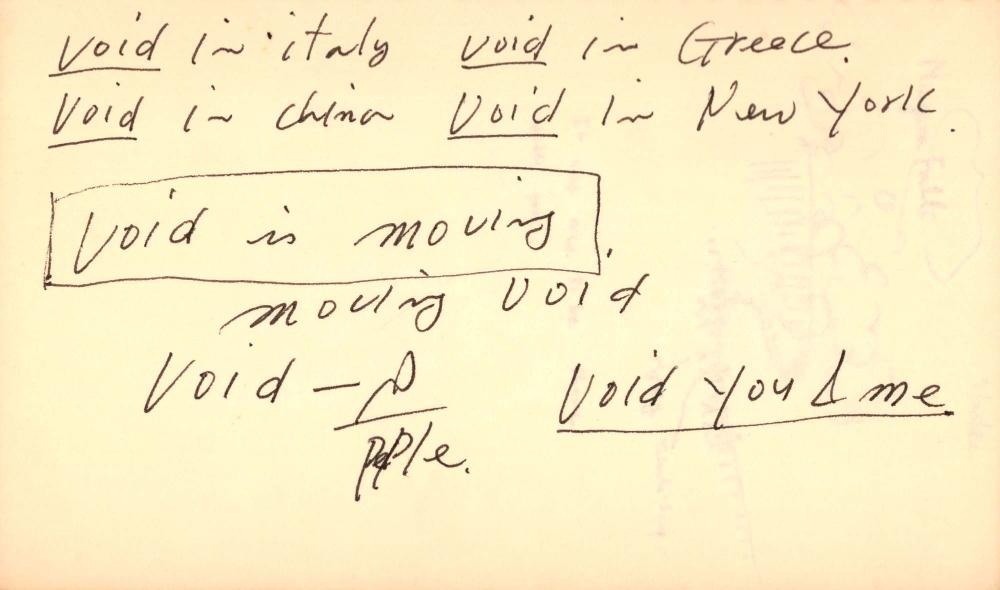 void in italy void in Greece.
Void in china Void in New York.
Void is moving.
moving void
Void —
pple.
Void you & me